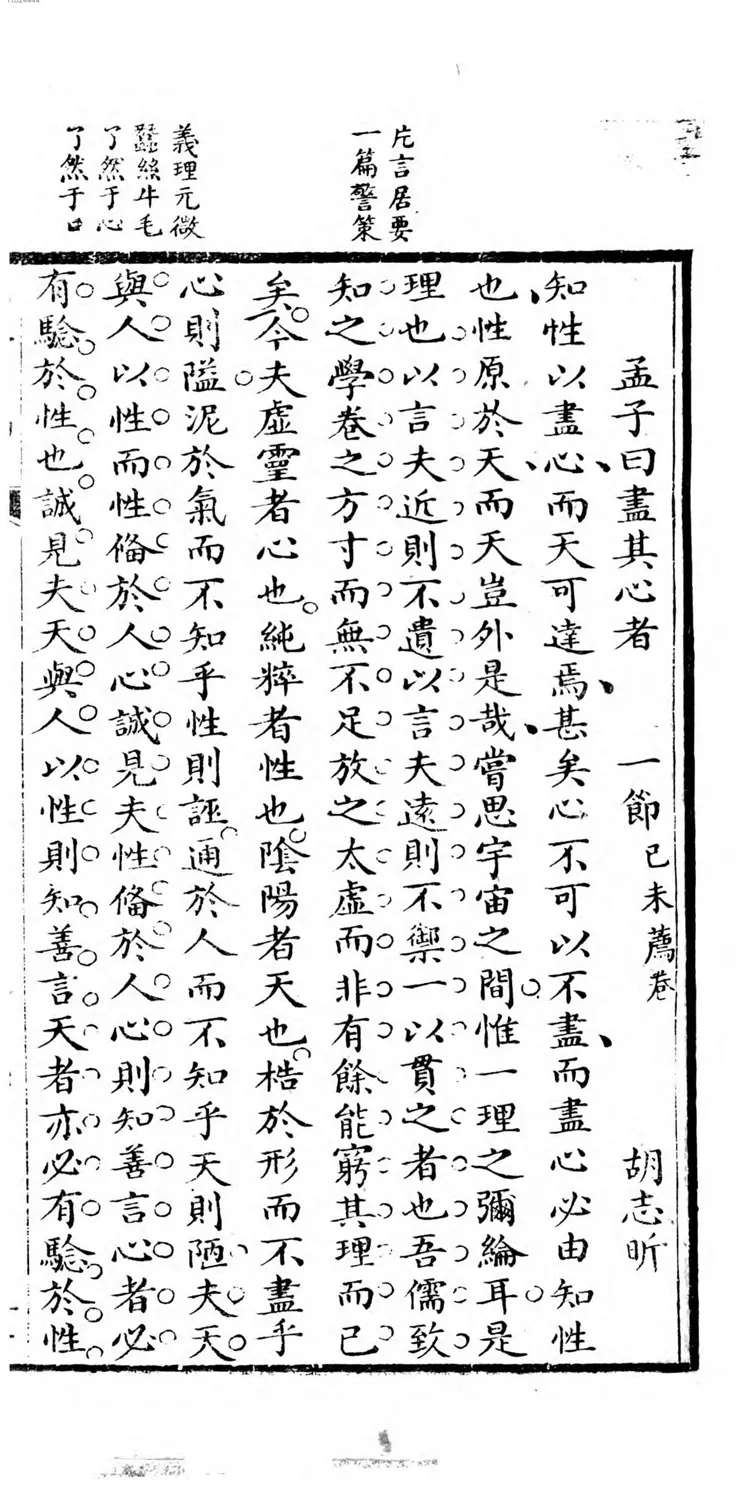 片言居要
一篇警策
義理元微
蠶絲牛毛
了然于心
了然于口
孟子曰盡其心者 一節 己未薦卷 胡志昕
知性以盡心而天可達焉甚矣心不可以不盡而盡心必由知性
也性原於天而天豈外是哉嘗思宇宙之間惟一理之彌綸耳是
理也以言夫近則不遺以言夫遠則不禦一以貫之者也吾儒致
知之學卷之方寸而無不足放之太虛而非有餘能窮其理而已
矣今夫虛靈者心也純粹者性也陰陽者天也梏於形而不盡乎
心則隘泥於氣而不知乎性則誣通於人而不知乎天則陋夫天
與人以性而性俻於人心誠見夫性俻於人心則知善言心者必
有驗於性也誠見夫天與人以性則知善言天者亦必有驗於性